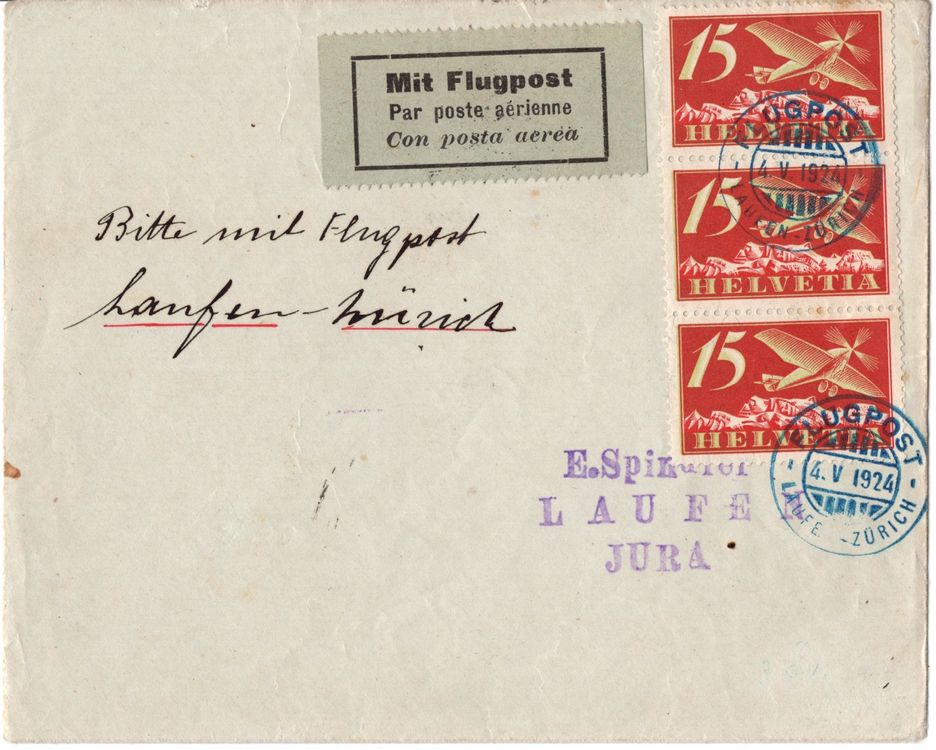 Mit Flugpost
Par poste aérienne
Con posta aerea
15
HELVETIA
FLUGPOST
4. V 1924
LAUFEN-ZÜRICH
15
HELVETIA
15
HELVETIA
FLUGPOST
4. V 1924
LAUFEN-ZÜRICH
Bitte mit Flugpost
Laufen-Zürich
E.Spindler
LAUFEN
JURA